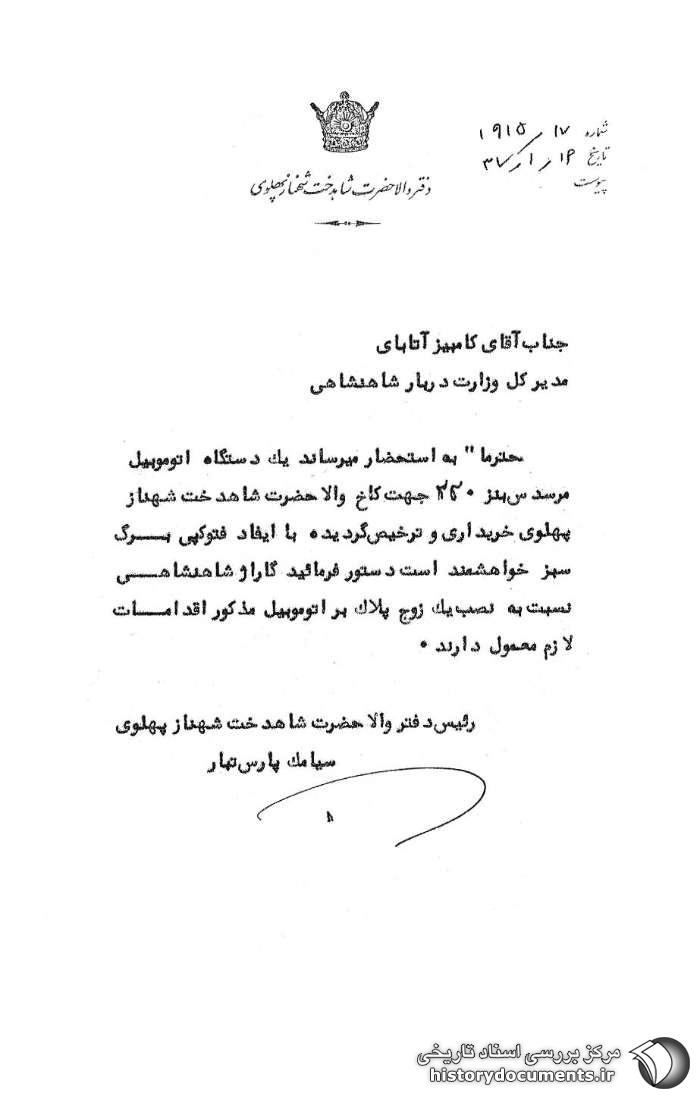 شماره ۱۷ ر ۱۹۱۵
تاریخ ۱۶ ر ۱ ر ۳۷
پیوست
دفتر والاحضرت شاهدخت شهناز پهلوی
جناب آقای کامبیز آتابای
مدیر کل وزارت دربار شاهنشاهی
محترما" به استحضار میرساند یك دستگاه اتوموبیل
مرسدس بنز ۲۲۰ جهت کاخ والاحضرت شاهدخت شهناز
پهلوی خریداری و ترخیص گردیده با ایفاد فتوکپی بـــرگ
سبز خواهشمند است دستور فرمائید گاراژ شاهنشاهـــی
نسبت به نصب یك زوج پلاك بر اتوموبیل مذکور اقدامـــات
لازم معمول دارند ۰
رئیس دفتر والاحضرت شاهدخت شهناز پهلوی
سیامك پارس تهار
مرکز بررسی اسناد تاریخی
historydocuments.ir